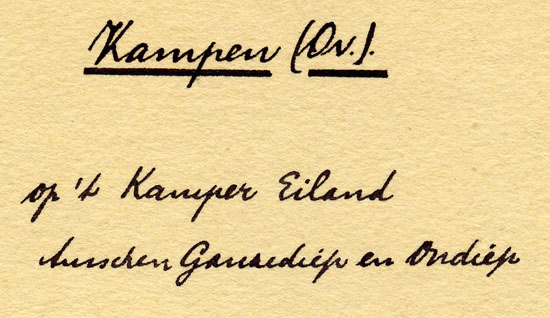 Kampen (Ov.).
op 't Kamper Eiland
tusschen Ganzediep en Ondiep